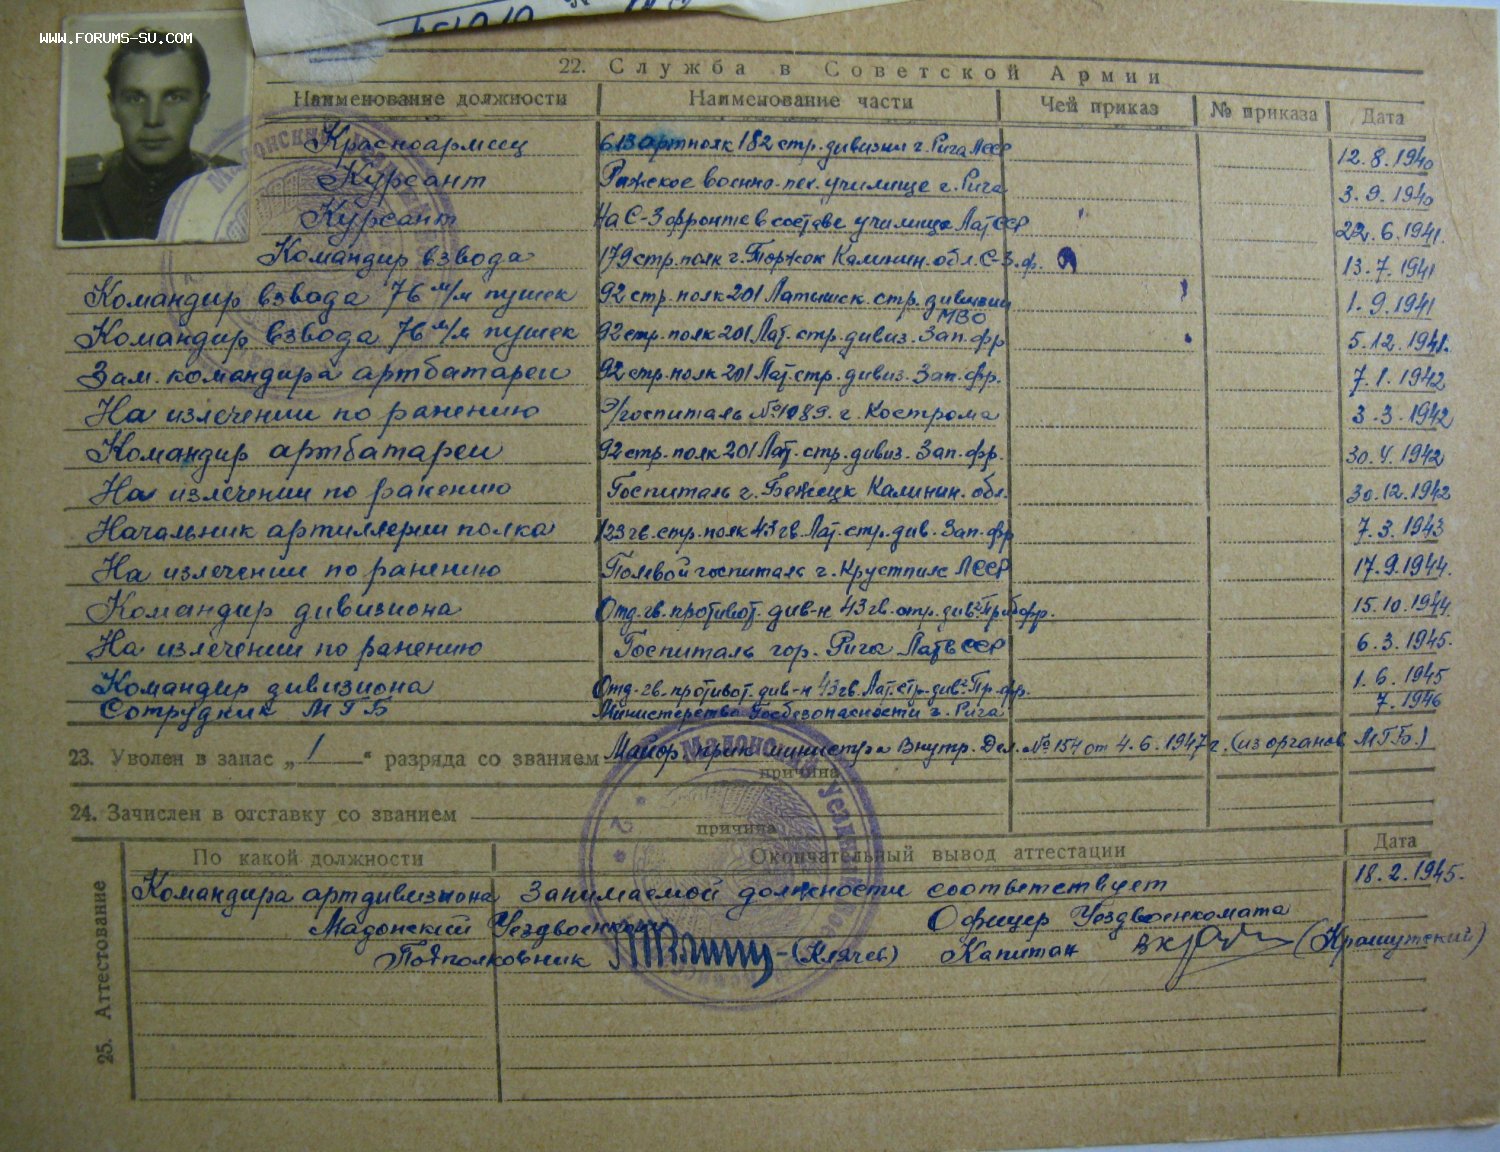 WWW.FORUMS-SU.COM
22. Служба в Советской Армии
Наименование должности Наименование части Чей приказ № приказа Дата
Красноармеец 613 артполк 182 стр. дивизии г. Рига ЛССР 12.8.1940
Курсант Рижское военно-пех. училище г. Рига 3.9.1940
Курсант На С-З фронте в составе училища ЛатССР 22.6.1941.
Командир взвода 179 стр. полк г. Торжок Калинин. обл. С-З. ф. 13.7.1941
Командир взвода 76 м/м пушек 92 стр. полк 201 Латышск. стр. дивизии МВО 1.9.1941
Командир взвода 76 м/м пушек 92 стр. полк 201 Лат. стр. дивиз. Зап. фр 5.12.1941.
Зам. командира артбатареи 92 стр. полк 201 Лат. стр. дивиз. Зап. фр. 7.1.1942
На излечении по ранению Э/госпиталь №1089. г. Кострома 3.3.1942
Командир артбатареи 92 стр. полк 201 Лат. стр. дивиз. Зап. фр. 30.V.1942
На излечении по ранению Госпиталь г. Бежецк Калинин. обл. 30.12.1942
Начальник артиллерии полка 123 гв. стр. полк 43 гв. Лат. стр. див. Зап. фр 7.3.1943
На излечении по ранению Полевой госпиталь г. Крустпилс ЛССР 17.9.1944.
Командир дивизиона Отд. гв. противот. див-н 43 гв. стр. див. Приб. фр. 15.10.1944.
На излечении по ранению Госпиталь гор. Рига ЛатвССР 6.3.1945.
Командир дивизиона Отд. гв. противот. див-н 43 гв. Лат. стр. див. Пр. фр. 1.6.1945
Сотрудник МГБ Министерство Госбезопасности г. Рига 7.1946
23. Уволен в запас „ 1 “ разряда со званием Майор прик. министра Внутр. Дел. № 154 от 4.6.1947 г. (из органов МГБ.)
причина
24. Зачислен в отставку со званием
причина
25. Аттестование
По какой должности Окончательный вывод аттестации Дата
Командира артдивизиона Занимаемой должности соответствует 18.2.1945.
Мадонский Уездвоенком Офицер Уездвоенкомата
Подполковник (Клячев) Капитан (Крашутский)
Мадонский уездный